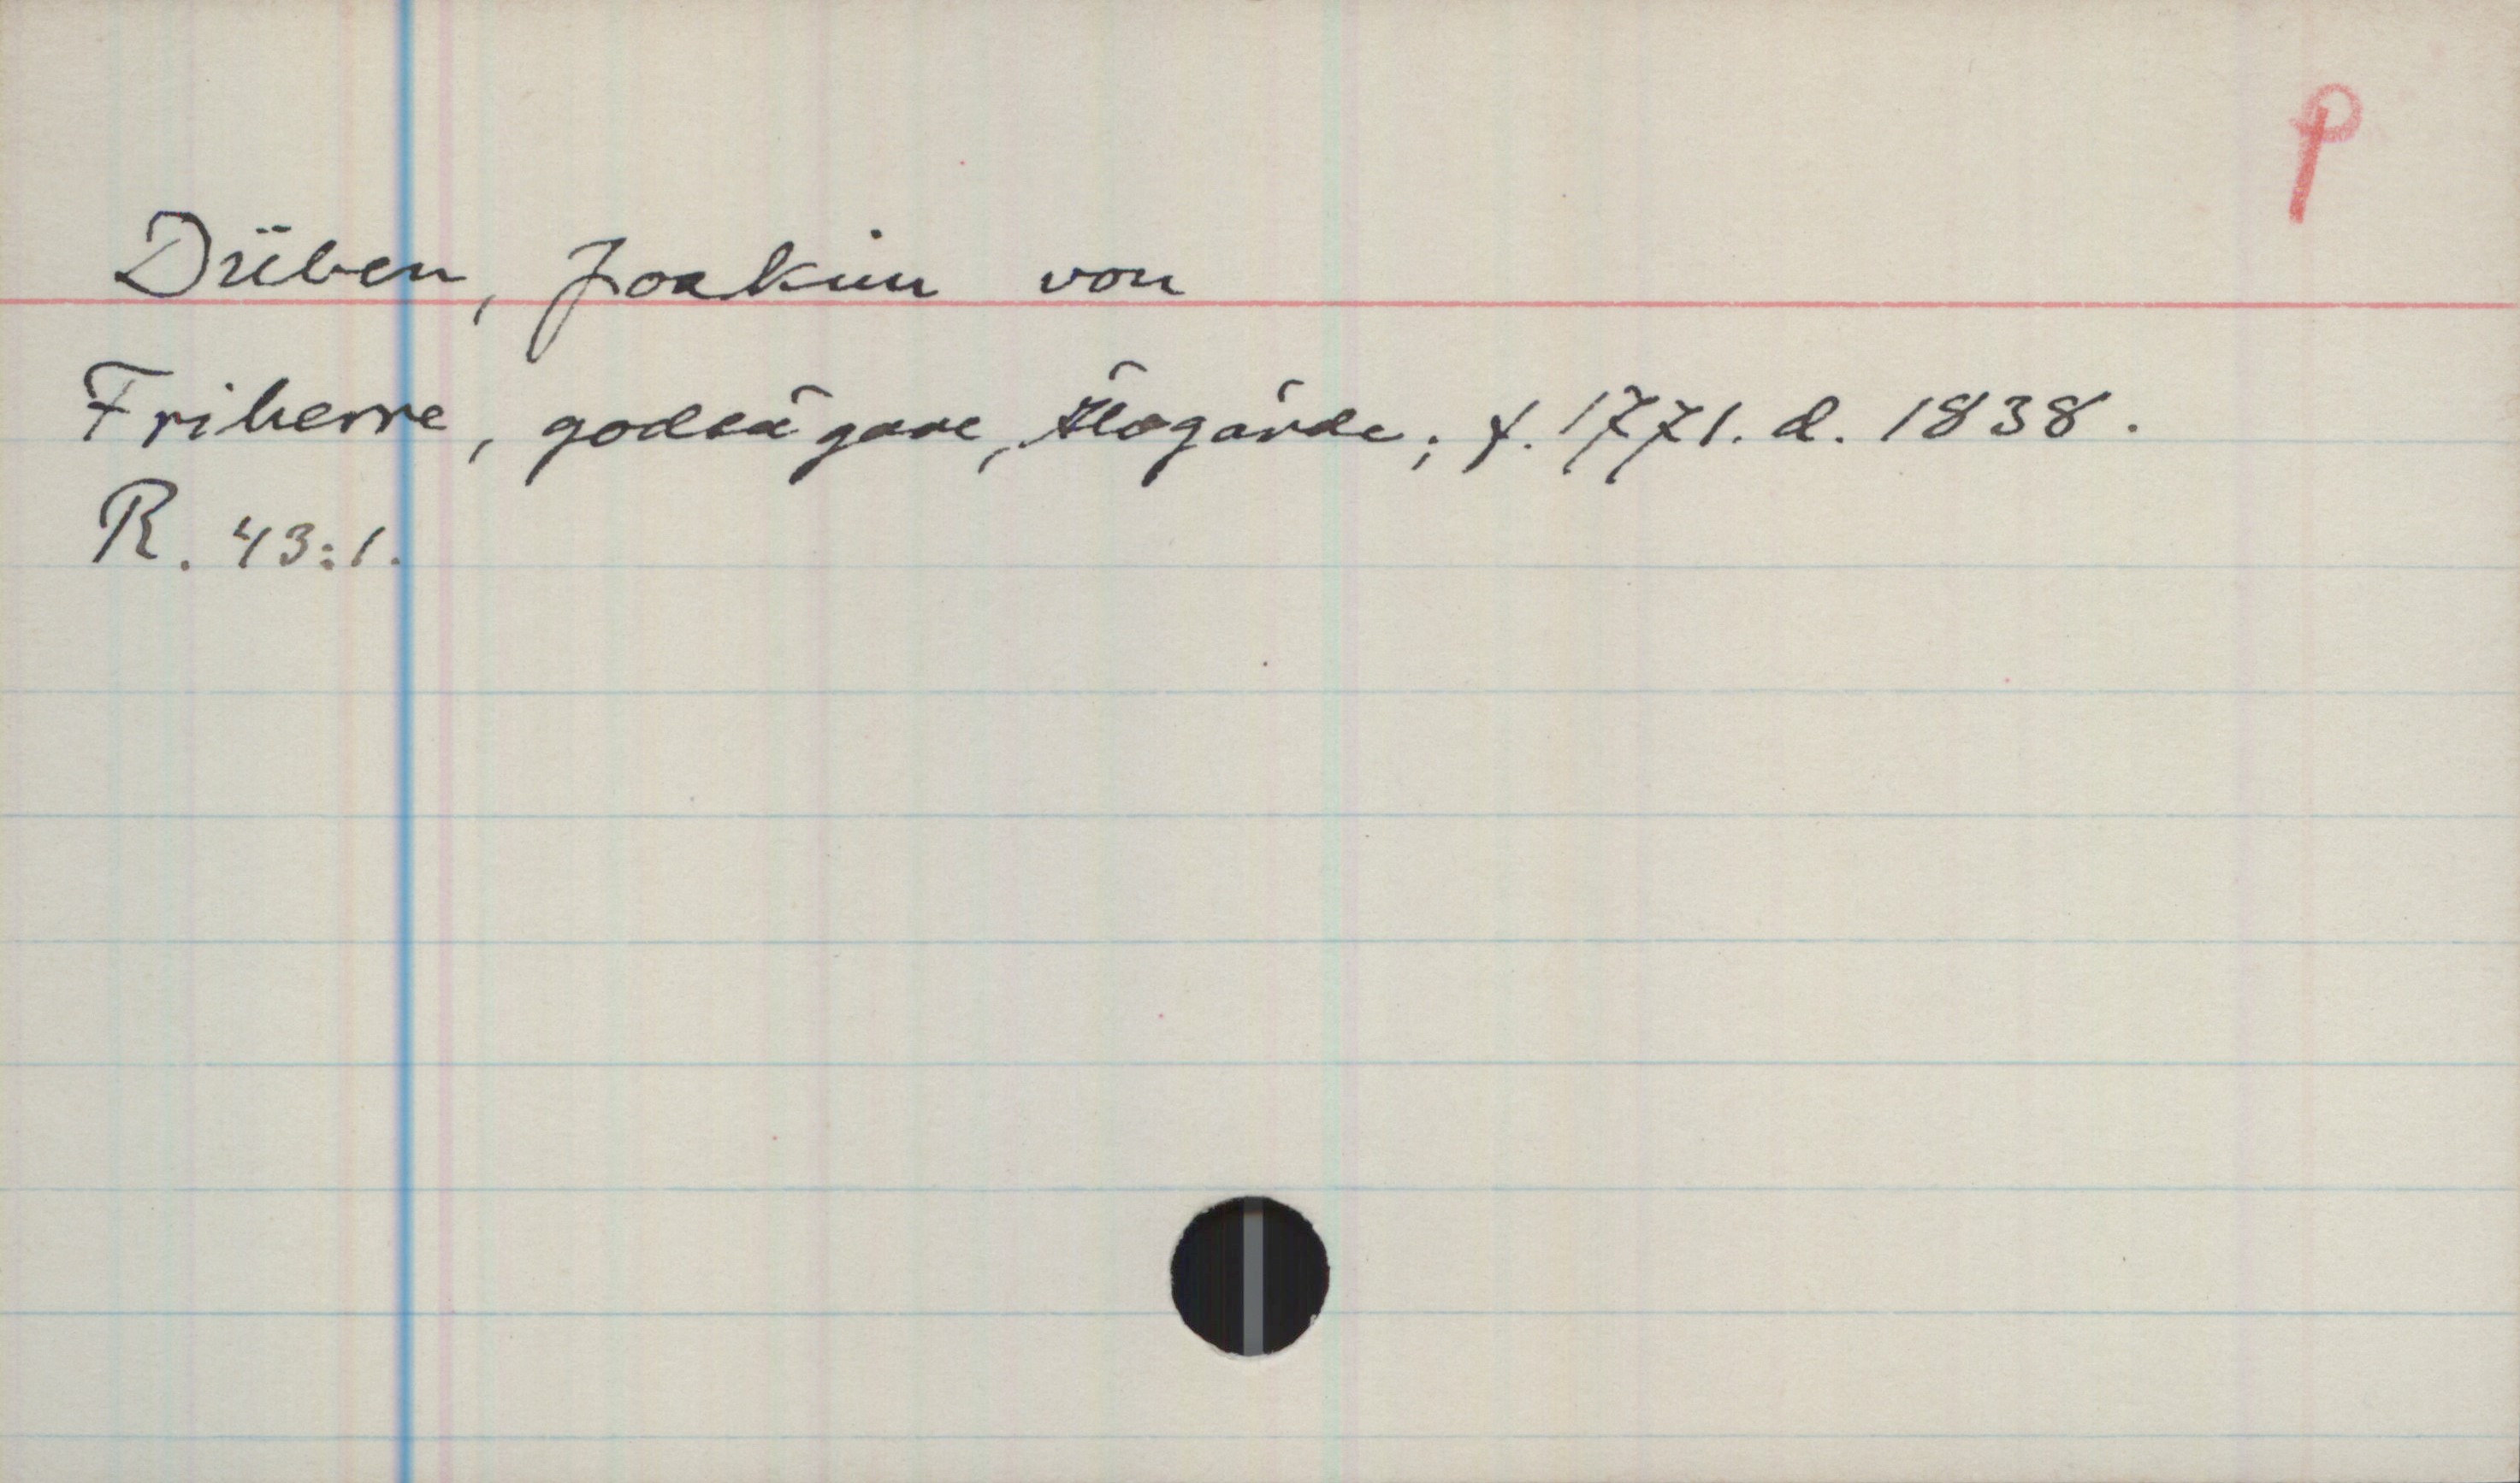 P
Düben, Joakim von
Friherre, godsägare, f. 1771. d. 1838.
R. 43:1.